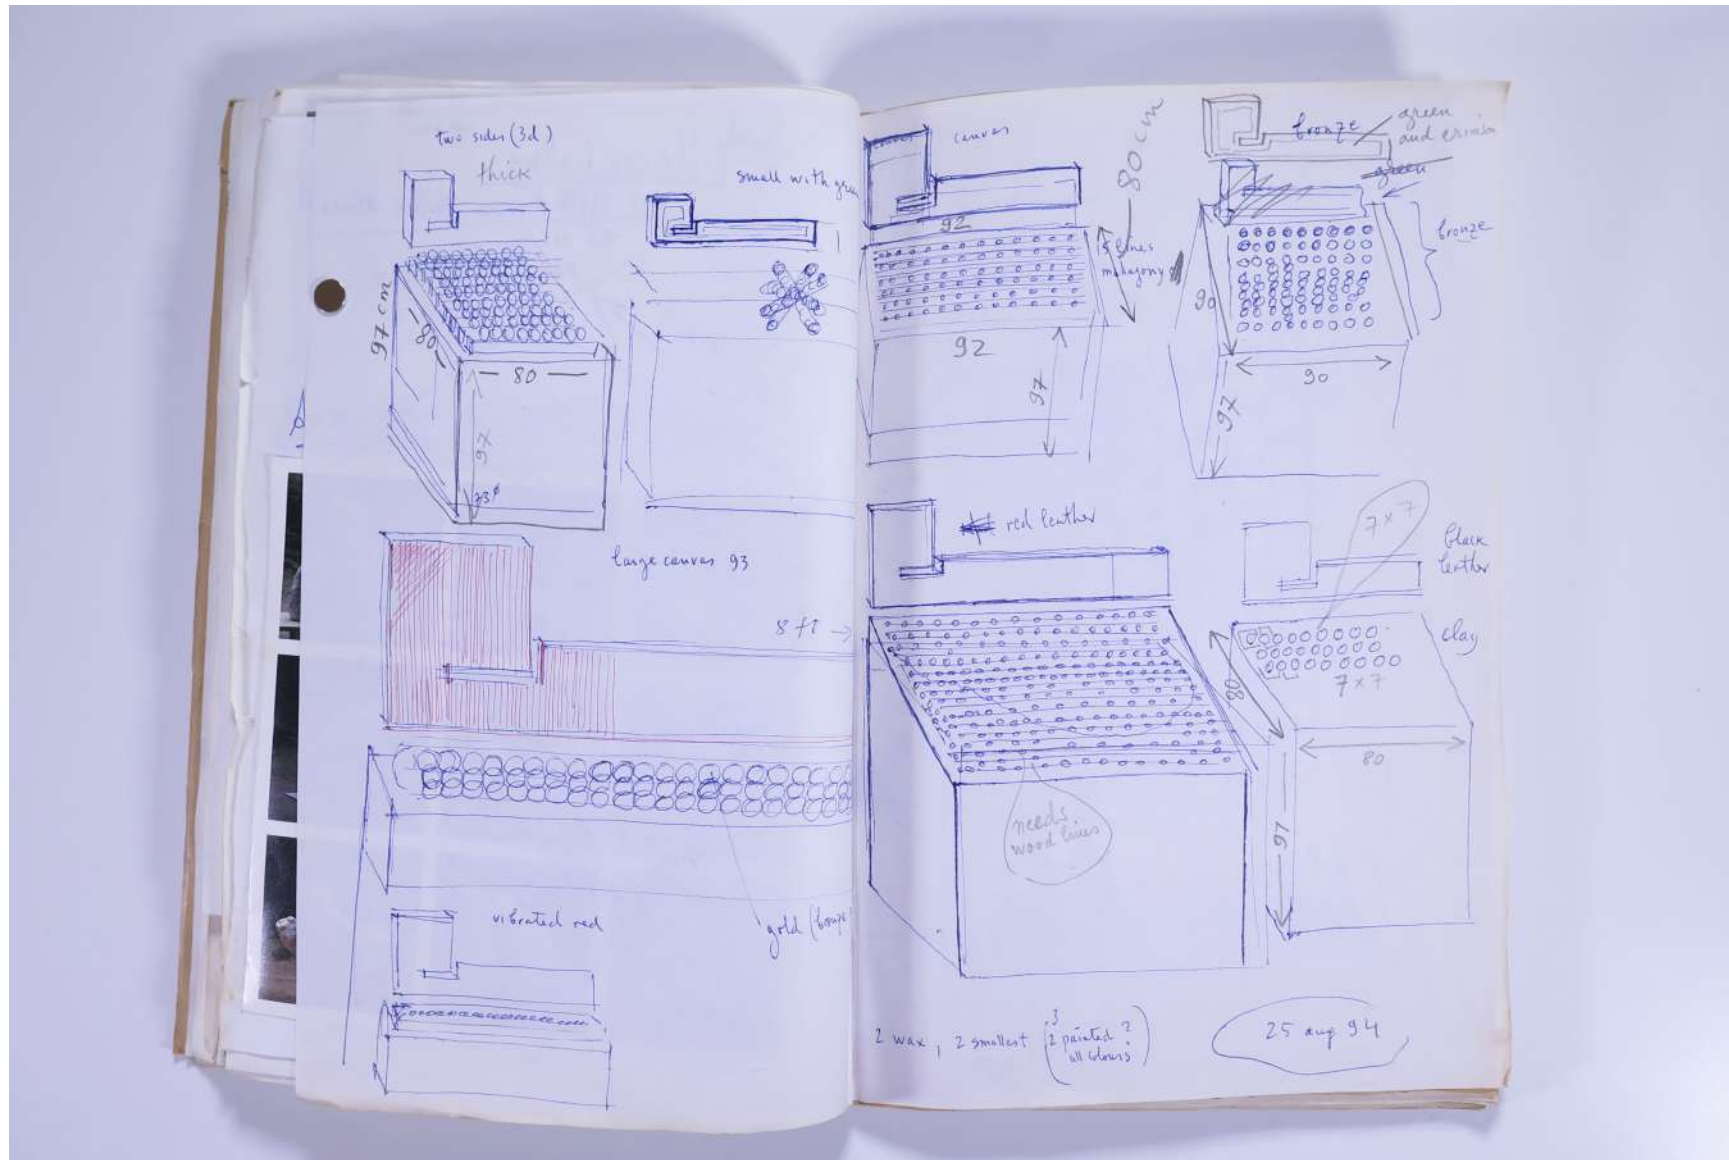 two sides (3d)
thick
small with
97 cm
80
80
97
large canvas 93
8 ft →
vibrated red
gold (bronze
canvas
80 cm
92
15 lines
mahagony
92
97
bronze
green
and
green
bronze
90
90
97
red leather
7 x 7
black
leather
clay
7 x 7
80
80
97
needs
wood lines
2 wax, 2 smallest (
3
2 painted ?
all colours ?
)
25 aug 94